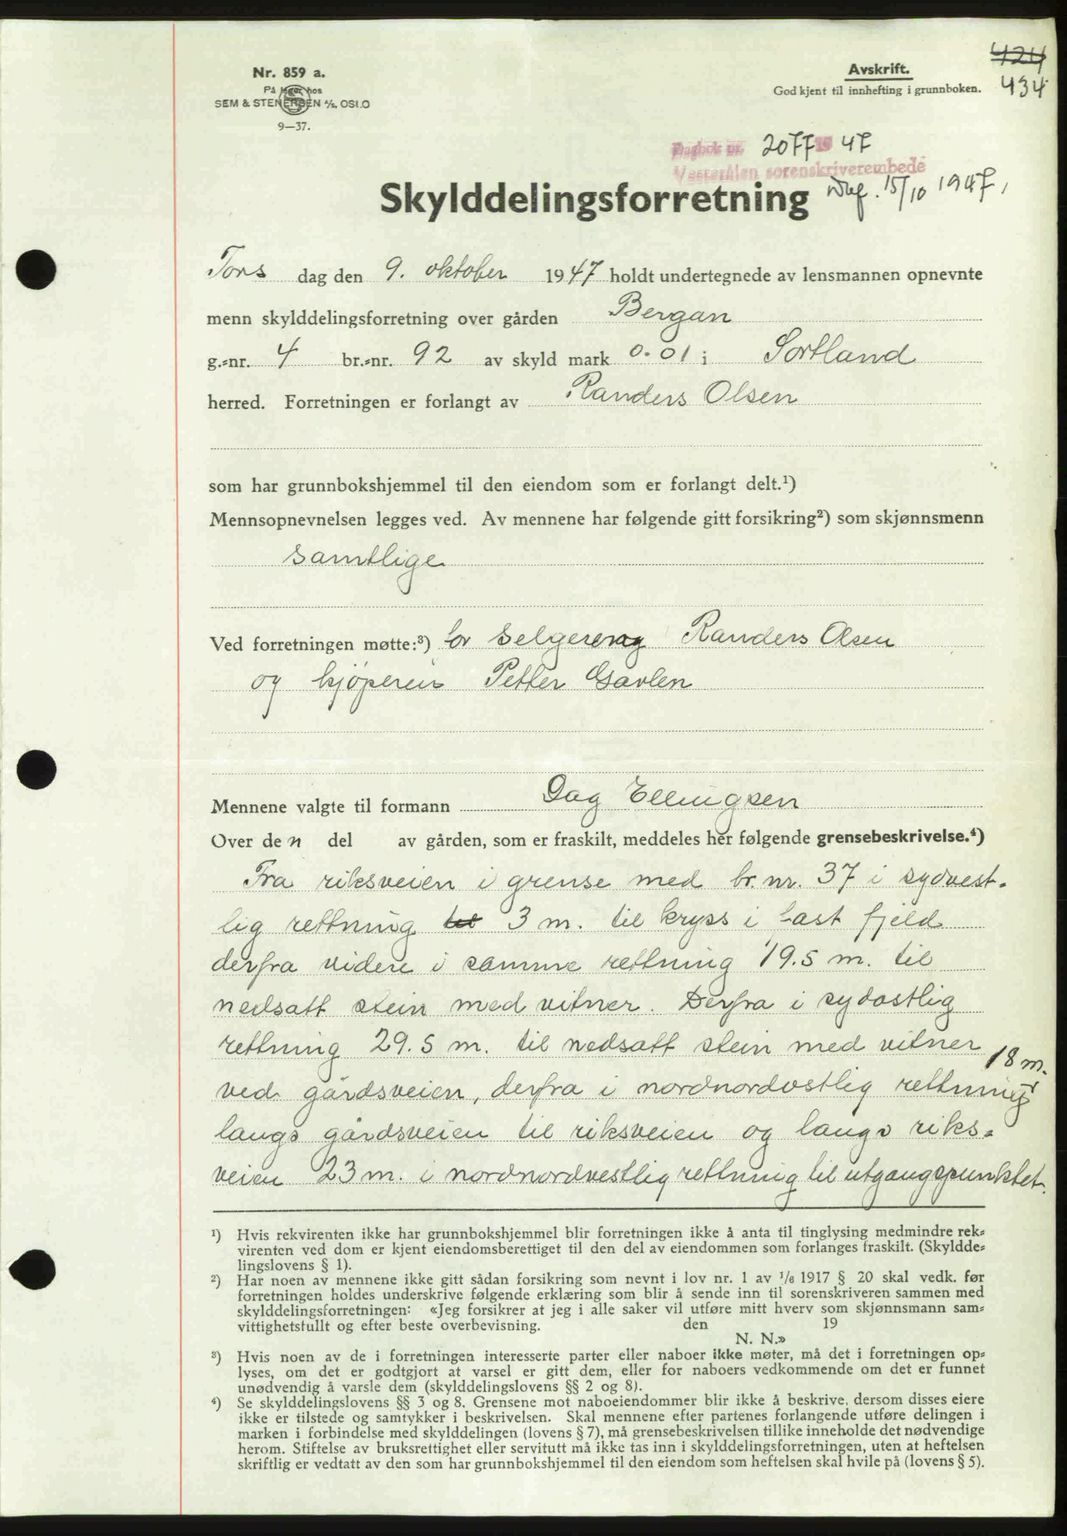 Nr. 859 a.
På lager hos
SEM & STENERSEN A/S, OSLO
9—37.
Avskrift.
God kjent til innhefting i grunnboken.
424
434
Dagbok nr. 2077 19 47
Vesterålen sorenskriverembede
15/10 1947,
Skylddelingsforretning
Tors dag den 9. oktober 1947 holdt undertegnede av lensmannen opnevnte
menn skylddelingsforretning over gården Bergan
g.-nr. 4 br.-nr. 92 av skyld mark 0.01 i Sortland
herred. Forretningen er forlangt av Randers Olsen
som har grunnbokshjemmel til den eiendom som er forlangt delt.¹)
Mennsopnevnelsen legges ved. Av mennene har følgende gitt forsikring²) som skjønnsmenn
samtlige
Ved forretningen møtte:³) for selgeren Randers Olsen
og kjöperen Petter
Mennene valgte til formann Dag Ellingsen
Over den del av gården, som er fraskilt, meddeles her følgende grensebeskrivelse.⁴)
Fra riksveien i grense med br. nr. 37 i sydvest-
lig rettning til 3 m. til kryss i fast fjeld
derfra videre i samme rettning 19.5 m. til
nedsatt stein med vitner. Derfra i sydostlig
rettning 29.5 m. til nedsatt stein med vitner
ved gårdsveien, derfra i nordnordostlig rettning 18 m.
langs gårdsveien til riksveien og langs riks-
veien 23 m. i nordnordvestlig rettning til utgangspunktet.
¹) Hvis rekvirenten ikke har grunnbokshjemmel blir forretningen ikke å anta til tinglysing medmindre rek-
virenten ved dom er kjent eiendomsberettiget til den del av eiendommen som forlanges fraskilt. (Skyldde-
lingslovens § 1).
²) Har noen av mennene ikke gitt sådan forsikring som nevnt i lov nr. 1 av 1/6 1917 § 20 skal vedk. før
forretningen holdes underskrive følgende erklæring som blir å sende inn til sorenskriveren sammen med
skylddelingsforretningen: «Jeg forsikrer at jeg i alle saker vil utføre mitt hverv som skjønnsmann sam-
vittighetsfullt og efter beste overbevisning. den 19
N. N.»
³) Hvis noen av de i forretningen interesserte parter eller naboer ikke møter, må det i forretningen op-
lyses, om det er godtgjort at varsel er gitt dem, eller for naboers vedkommende om det er funnet
unødvendig å varsle dem (skylddelingslovens §§ 2 og 8).
⁴) Se skylddelingslovens §§ 3 og 8. Grensene mot naboeiendommer blir ikke å beskrive, dersom disses eiere
ikke er tilstede og samtykker i beskrivelsen. Skal mennene efter partenes forlangende utføre delingen i
marken i forbindelse med skylddelingen (lovens § 7), må grensebeskrivelsen tillike inneholde det nødvendige
herom. Stiftelse av bruksrettighet eller servitutt må ikke tas inn i skylddelingsforretningen, uten at heftelsen
skriftlig er vedtatt av den som har grunnbokshjemmel til den eiendom som heftelsen skal hvile på (lovens § 5).